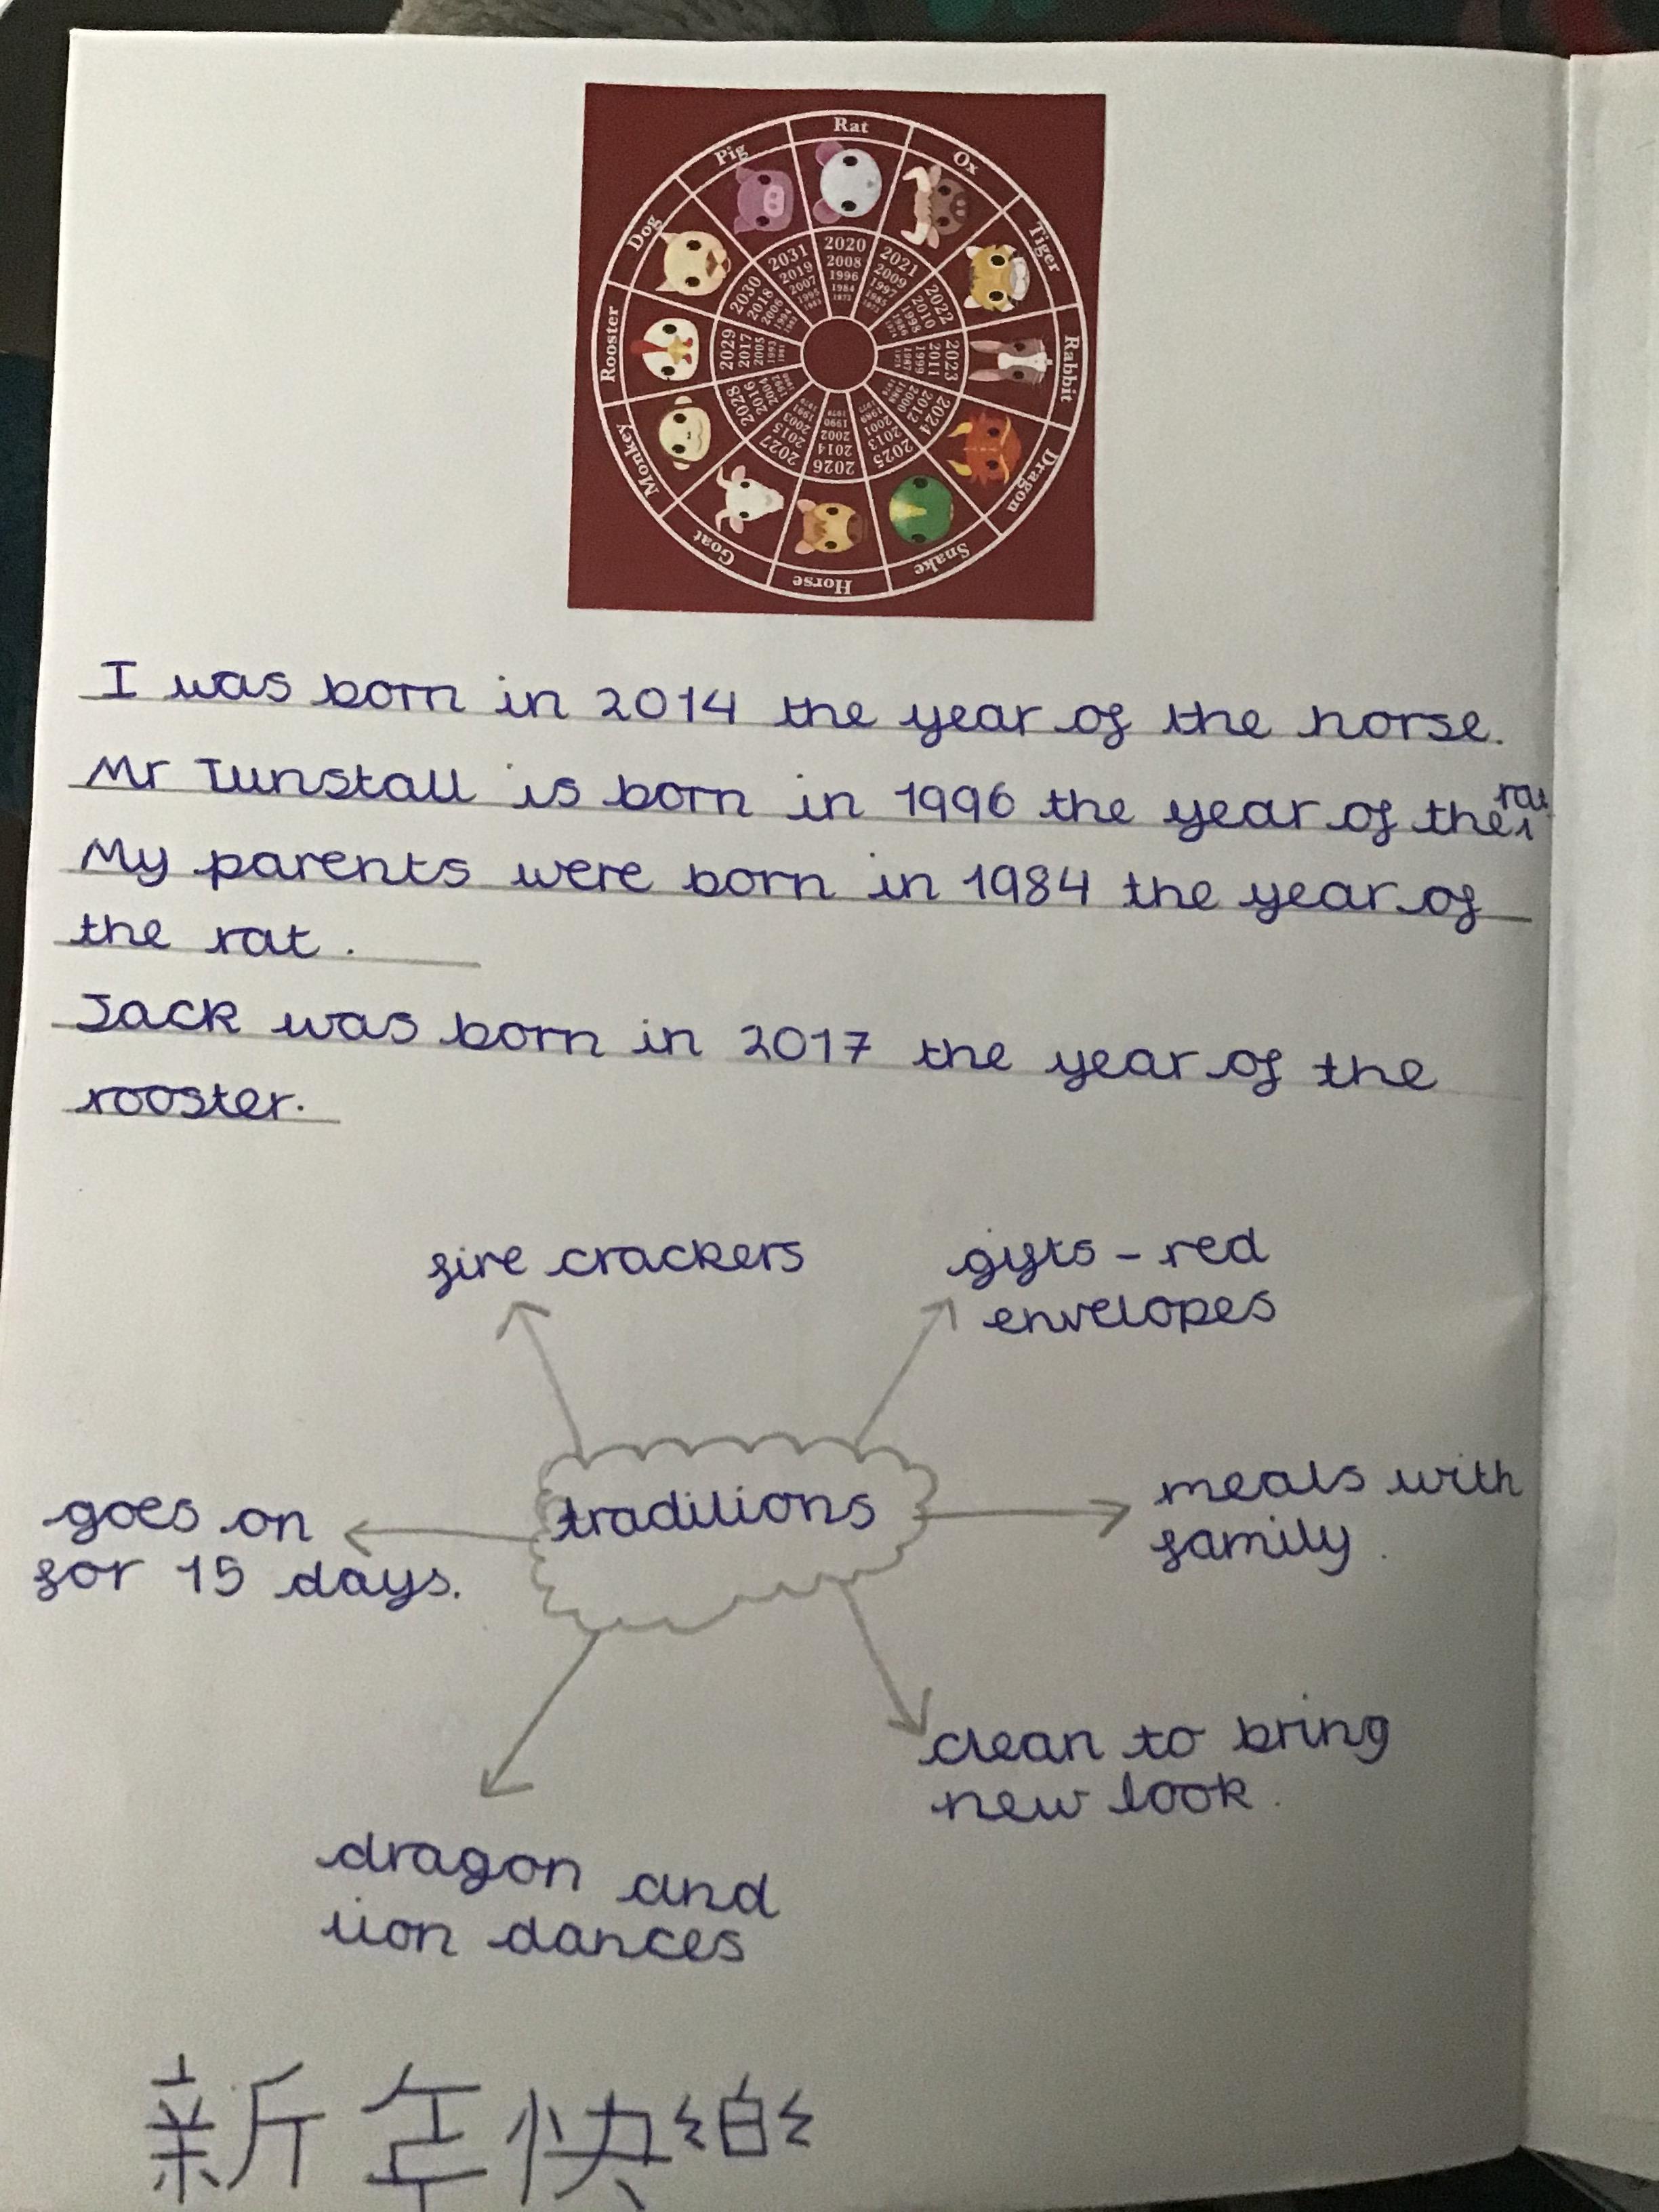 Rat
Ox
Tiger
Rabbit
Dragon
Snake
Horse
Goat
Monkey
Rooster
Dog
Pig
2020 2008 1996 1984 1972
2021 2009 1997 1985 1973
2022 2010 1998 1986 1974
2023 2011 1999 1987 1975
2024 2012 2000 1988 1976
2025 2013 2001 1989 1977
2026 2014 2002 1990 1978
2027 2015 2003 1991 1979
2028 2016 2004 1992 1980
2029 2017 2005 1993 1981
2030 2018 2006 1994 1982
2031 2019 2007 1995 1983
I was born in 2014 the year of the horse.
Mr Tunstall is born in 1996 the year of the rat
My parents were born in 1984 the year of
the rat.
Jack was born in 2017 the year of the
rooster.
fire crackers
gifts - red
envelopes
goes on
for 15 days.
traditions
meals with
family.
clean to bring
new look.
dragon and
lion dances
新年快